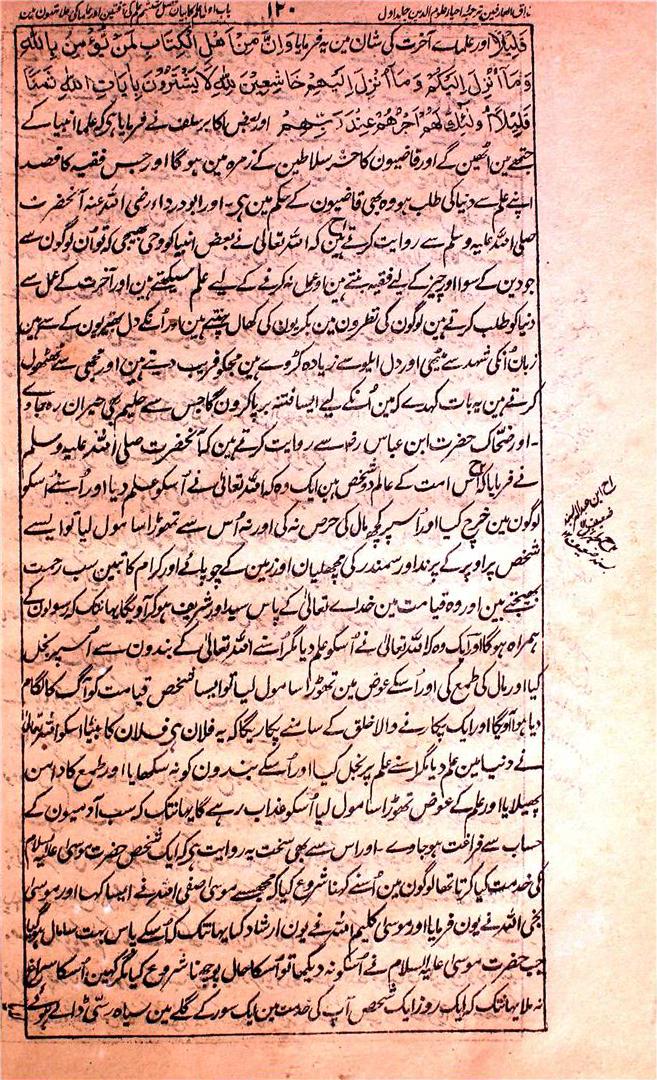 مذاق العارفین ترجمہ احیاء علوم الدین جلد اول ۱۲۰ باب اول علم کا بیان فصل ششم علم کی آفتین اور علما کی علامتون مین
قَلِیْلًا اور علماے آخرت کی شان مین یہ فرمایا وَاِنَّ مِنْ اَهْلِ الْكِتَابِ لَمَنْ يُّؤْمِنُ بِاللّٰهِ
وَمَآ اُنْزِلَ اِلَيْكُمْ وَمَآ اُنْزِلَ اِلَيْهِمْ خَاشِعِيْنَ لِلّٰهِ لَا يَشْتَرُوْنَ بِاٰيَاتِ اللّٰهِ ثَمَنًا
قَلِيْلًا اُولٰٓئِكَ لَهُمْ اَجْرُهُمْ عِنْدَ رَبِّهِمْ اور بعض اکابر سلف نے فرمایا ہی کہ علما انبیا کے
جتھے مین اٹھین گے اور قاضیون کا حشر سلاطین کے زمرہ مین ہوگا اور جس فقیہ کا قصد
اپنے علم سے دنیا کی طلب ہو وہ بھی قاضیون کے حکم مین ہی۔ اور ابو درداء رضی اللہ عنہ آنحضرت
صلی اللہ علیہ وسلم سے روایت کرتے ہین کہ اللہ تعالیٰ نے بعض انبیا کو وحی بھیجی کہ تو ان لوگون سے
جو دین کے سوا اور چیز کے لیے فقیہ بنتے ہین اور عمل نہ کرنے کے لیے علم سیکھتے ہین اور آخرت کے عمل سے
دنیا کو طلب کرتے ہین لوگون کی نظرون مین بکریون کی کھال پہنتے ہین اور اُنکے دل بھیڑیون کے سے ہین
زبان اُنکی شہد سے میٹھی اور دل ایلوے سے زیادہ کڑوے ہین مجکو فریب دیتے ہین اور مجھی سے ٹھٹھول
کرتے ہین یہ بات کہدے کہ مین اُنکے لیے ایسا فتنہ برپا کرون گا جس سے حلیم بھی حیران رہ جاوے
۔اور ضحاک حضرت ابن عباس رضہ سے روایت کرتے ہین کہ آنحضرت صلی اللہ علیہ وسلم
نے فرمایا کہ اس امت کے عالم دو شخص ہین ایک وہ کہ اللہ تعالیٰ نے اُسکو علم دیا اور اُسنے اُسکو
لوگون مین خرچ کیا اور اُسپر کچھ مال کی حرص نہ کی اور نہ اُس سے تھوڑا سا مول لیا تو ایسے
شخص پر اوپر کے پرند اور سمندر کی مچھلیان اور زمین کے چوپائے اور کرام کاتبین سب رحمت
بھیجتے ہین اور وہ قیامت مین خداے تعالیٰ کے پاس سید اور شریف ہوکر آویگا یہانتک کہ رسولون کے
ہمراہ ہوگا اور ایک وہ کہ اللہ تعالیٰ نے اُسکو علم دیا مگر اُسنے اللہ تعالیٰ کے بندون سے اُسپر بخل
کیا اور مال کی طمع کی اور اُسکے عوض مین تھوڑا سا مول لیا تو ایسا شخص قیامت کو آگ کا لگام
دیا ہوا آویگا اور ایک پکارنے والا خلق کے سامنے پکاریگا کہ یہ فلان ہی فلان کا بیٹا اسکو اللہ تعالیٰ
نے دنیا مین علم دیا مگر اسنے علم پر بخل کیا اور اُسکے بندون کو نہ سکھایا اور طمع کا دامن
پھیلایا اور علم کے عوض تھوڑا سا مول لیا اُسکو عذاب رہے گا یہانتک کہ سب آدمیون کے
حساب سے فراغت ہوجاوے ۔اور اس سے بھی سخت یہ روایت ہی کہ ایک شخص حضرت موسیٰ علیہ السلام
کی خدمت کیا کرتا تھا لوگون مین اُسنے کہنا شروع کیا کہ مجھسے موسیٰ صفی اللہ نے ایسا کہا اور موسیٰ
نجی اللہ نے یون فرمایا اور موسیٰ کلیم اللہ نے یون ارشاد کیا یہانتک کہ اُسکے پاس بہت سا مال ہوگیا
جب حضرت موسیٰ علیہ السلام نے اُسکو نہ دیکھا تو اُسکا حال پوچھنا شروع کیا مگر کہین اُسکا سراغ
نہ ملا یہانتک کہ ایک روز ایک شخص آپ کی خدمت مین ایک سور کے گلے مین سیاہ رسی ڈالے ہوئے